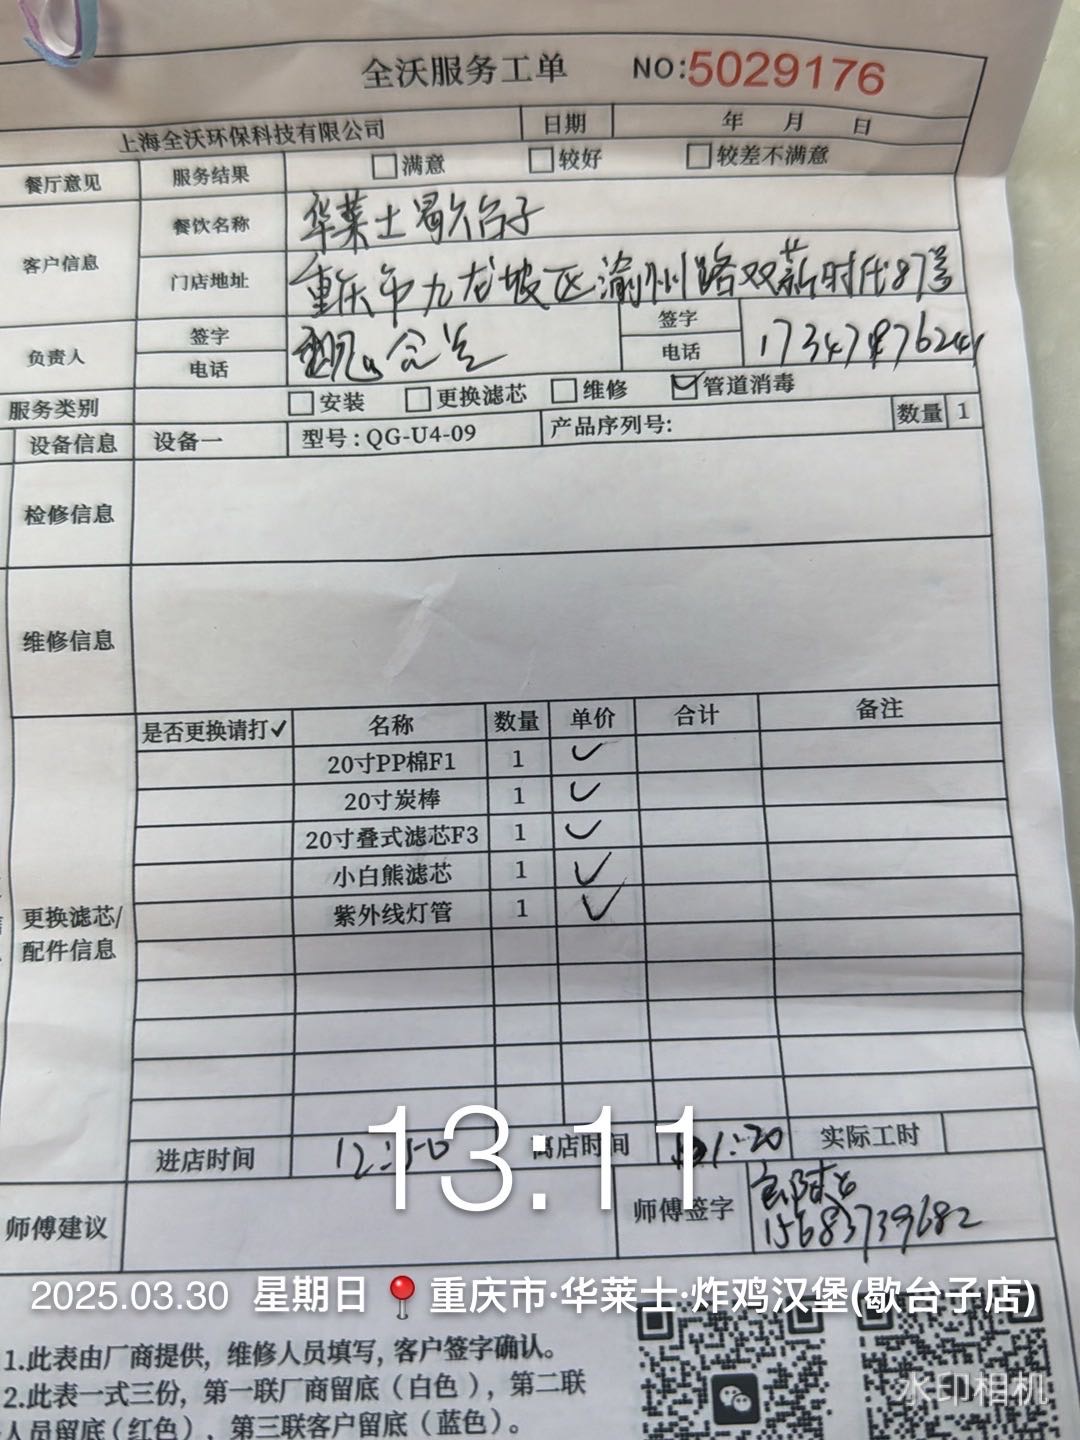 全沃服务工单 NO:5029176
上海全沃环保科技有限公司 日期 年 月 日
餐厅意见 服务结果 □满意 □较好 □较差不满意
客户信息 餐饮名称 华莱士歇台子
门店地址 重庆市九龙坡区渝州路双薪时代87号
负责人 签字 签字
电话 电话
服务类别 □安装 □更换滤芯 □维修 ☑管道消毒
设备信息 设备一 型号:QG-U4-09 产品序列号: 数量 1
检修信息
维修信息
是否更换请打✓ 名称 数量 单价 合计 备注
20寸PP棉F1 1 ✓
20寸炭棒 1 ✓
20寸叠式滤芯F3 1 ✓
小白熊滤芯 1 ✓
紫外线灯管 1 ✓
更换滤芯/
配件信息
13:11
进店时间 12:50 离店时间 1:20 实际工时
师傅建议 师傅签字
15683739682
2025.03.30 星期日 重庆市·华莱士·炸鸡汉堡(歇台子店)
1.此表由厂商提供,维修人员填写,客户签字确认。
2.此表一式三份,第一联厂商留底(白色),第二联
人员留底(红色),第三联客户留底(蓝色)。
水印相机